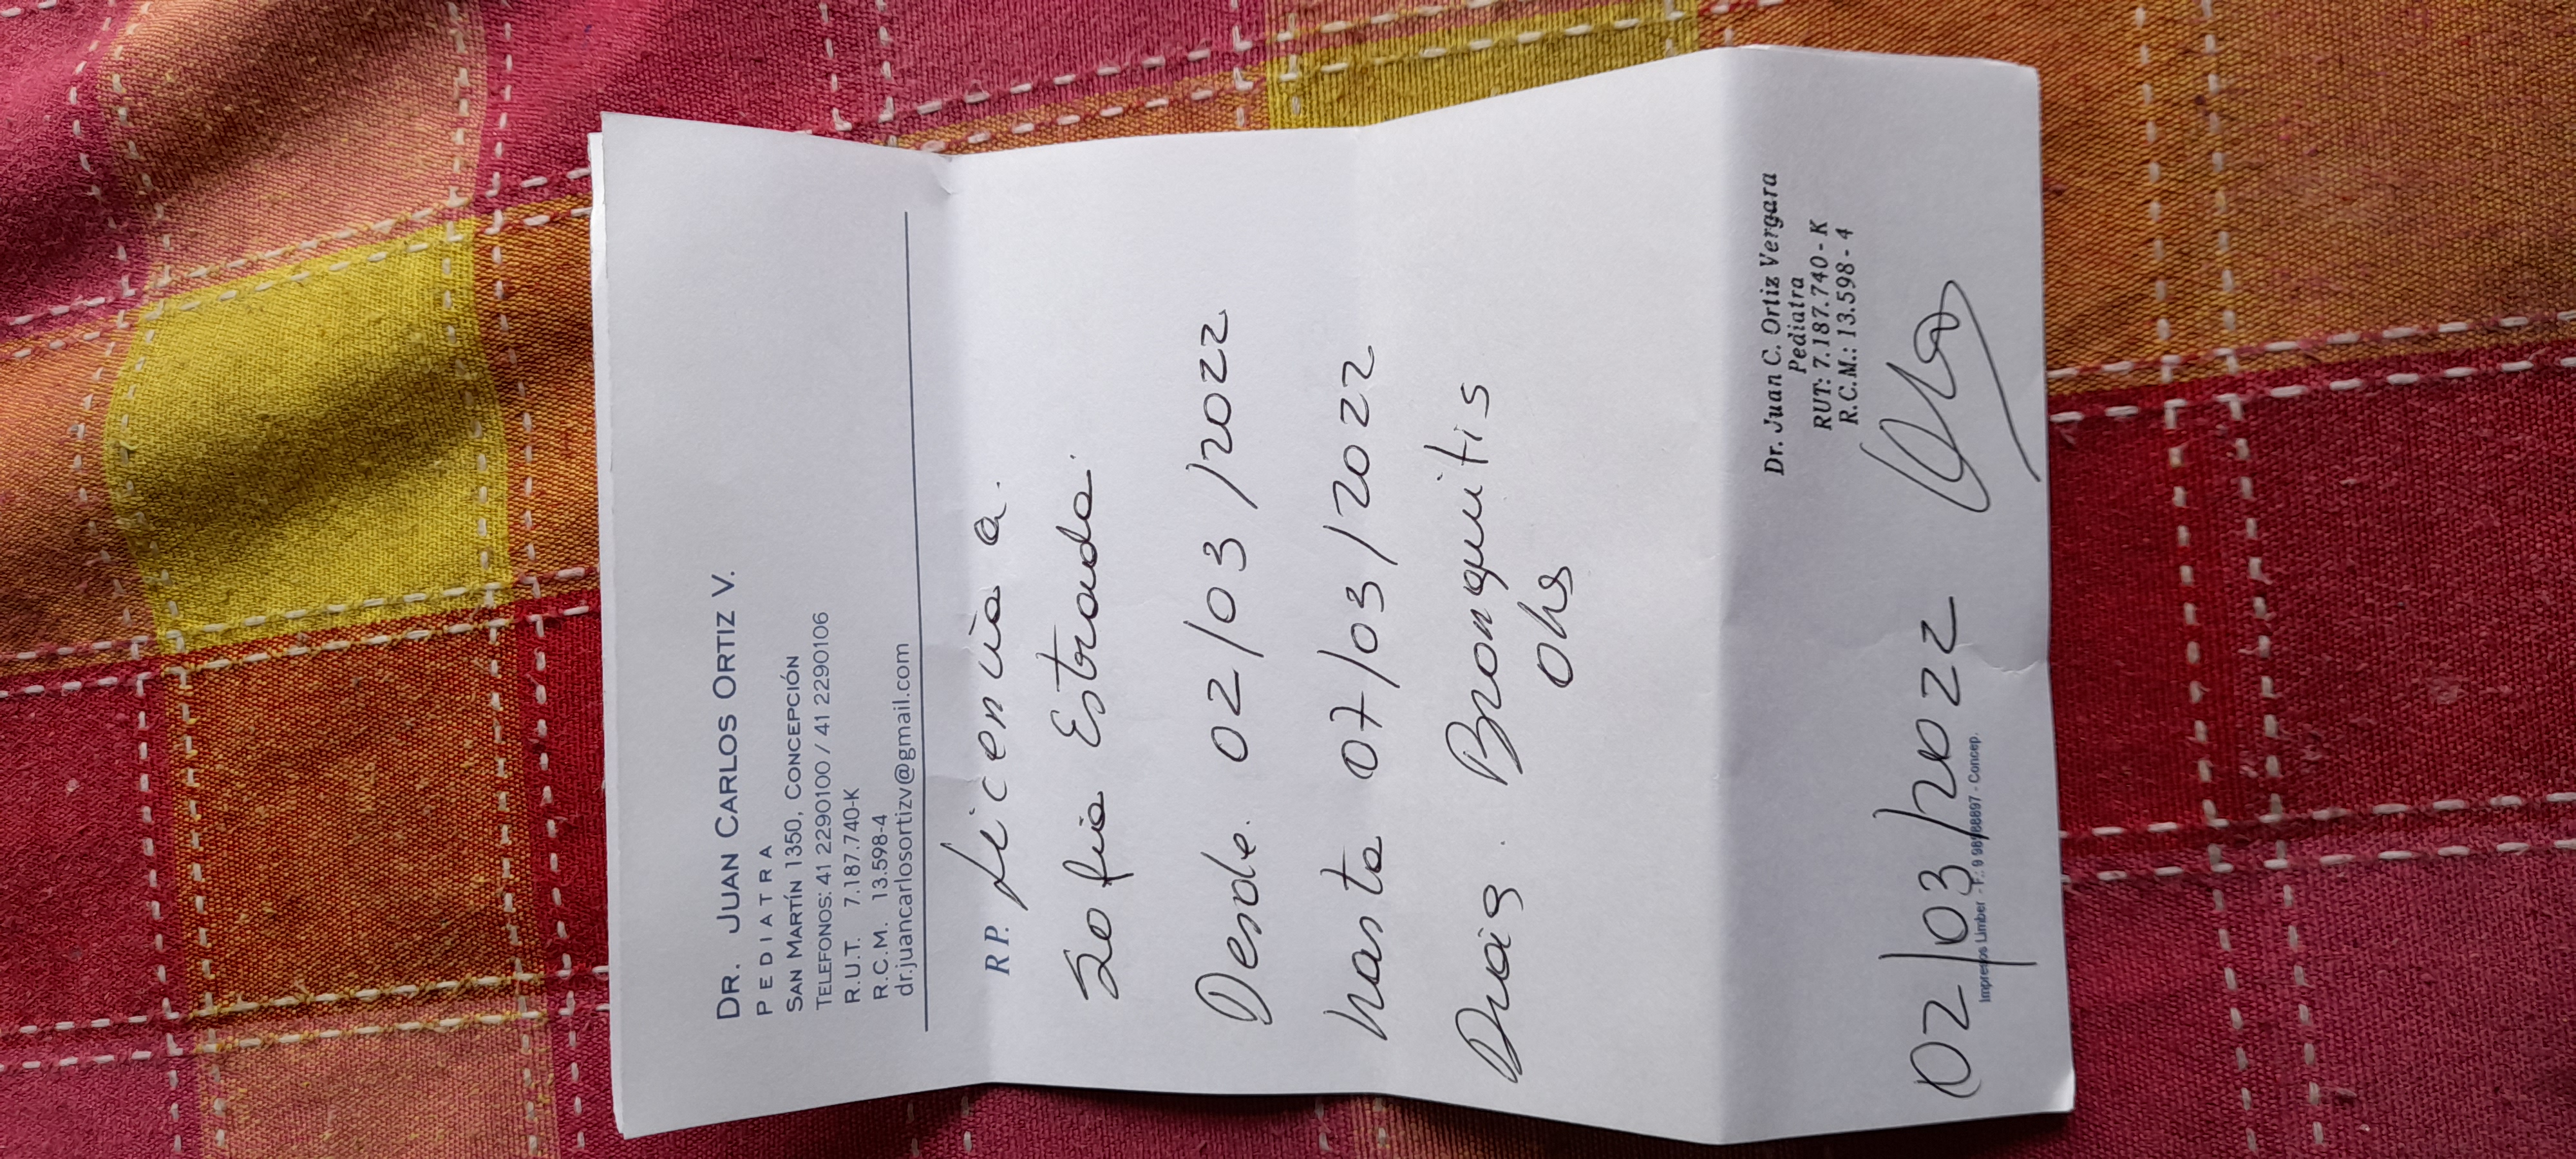 DR. JUAN CARLOS ORTIZ V.
PEDIATRA
SAN MARTÍN 1350, CONCEPCIÓN
TELEFONOS: 41 2290100 / 41 2290106
R.U.T. 7.187.740-K
R.C.M. 13.598-4
dr.juancarlosortizv@gmail.com
RP. Licencia a.
Sofia Estrada.
Desde. 02/03/2022
hasta 07/03/2022
Diag. Bronquitis
Obs
Dr. Juan C. Ortiz Vergara
Pediatra
RUT: 7.187.740-K
R.C.M.: 13.598-4
02/03/2022
Impresos Limber - F.: 9 98988897 - Concep.